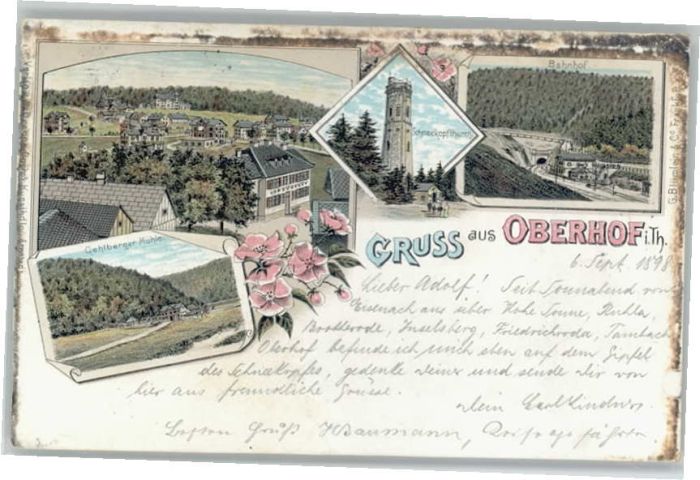 Bahnhof.
Schneekopfthurm
Gehlberger Mühle
GRUSS aus OBERHOF i. Th.
6. Sept. 1898
Lieber Adolf! Seit Sonnabend von
Eisenach aus über Hohe Sonne, Ruhla,
Brotterode, Inselsberg, Friedrichroda, Tambach
Oberhof befinde ich mich eben auf dem Gipfel
des Schneekopfes, gedenke deiner und sende dir von
hier aus freundliche Grüsse.
dein Carl Lindner.
Besten Gruß HBaumann, Reisegefährte